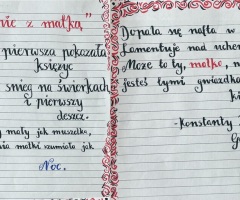 nie z matką"
pierwsza pokazała
księżyc
śnieg na świerkach
i pierwszy
deszcz.
mały jak muszelka,
matki szumiała jak
Noc.
Dopala się nafta w
Lamentuje nad uchem
Może to ty, matko, n
jesteś tymi gwiazdka
-Konstanty